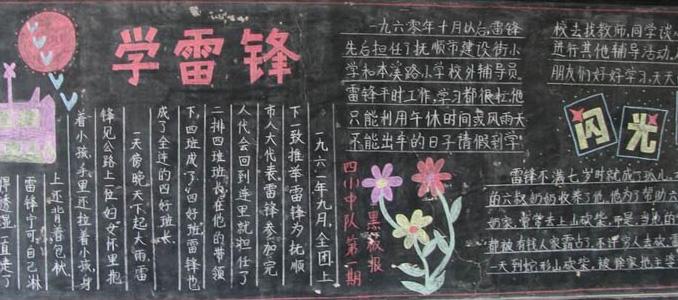 学雷锋
一九六一年九月,全团上
下一致推举雷锋为抚顺
市人大代表雷锋参加完
人代会回到连里就担任了
二排四班班长在他的带领
下,四班成了四好班雷锋也
成了全连的四好班长
一天傍晚天下起大雨,雷
锋见公路上一位妇女怀里抱
着小孩,手里还拉着小孩,身
上还背着包袱
雷锋宁可自己淋
得透湿,一直走了
四小中队第一期
黑板报
一九六零年十月以后,雷锋
先后担任了抚顺市建设街小
学和本溪路小学校外辅导员
雷锋平时工作,学习都很忙,他
只能利用午休时间或风雨天
不能出车的日子请假到学
校去找教师,同学谈
进行其他辅导活动,
朋友们好好学习,天天
闪光
雷锋不满七岁时就成了孤儿,
的六叔奶奶收养了他,他为了帮助六
奶家,常常去上山砍柴,可是,当地的
都被有钱人家霸占,不许穷人去砍,
一天到蛇形山砍柴,被徐家地主婆